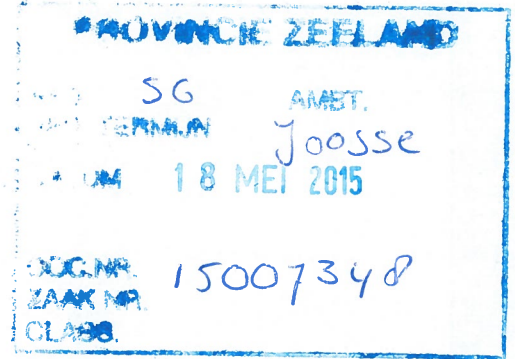 PROVINCIE ZEELAND
SG AMBT.
TERMIJN Joosse
18 MEI 2015
DOC.NR. 15007348
ZAAK NR.
CLASS.